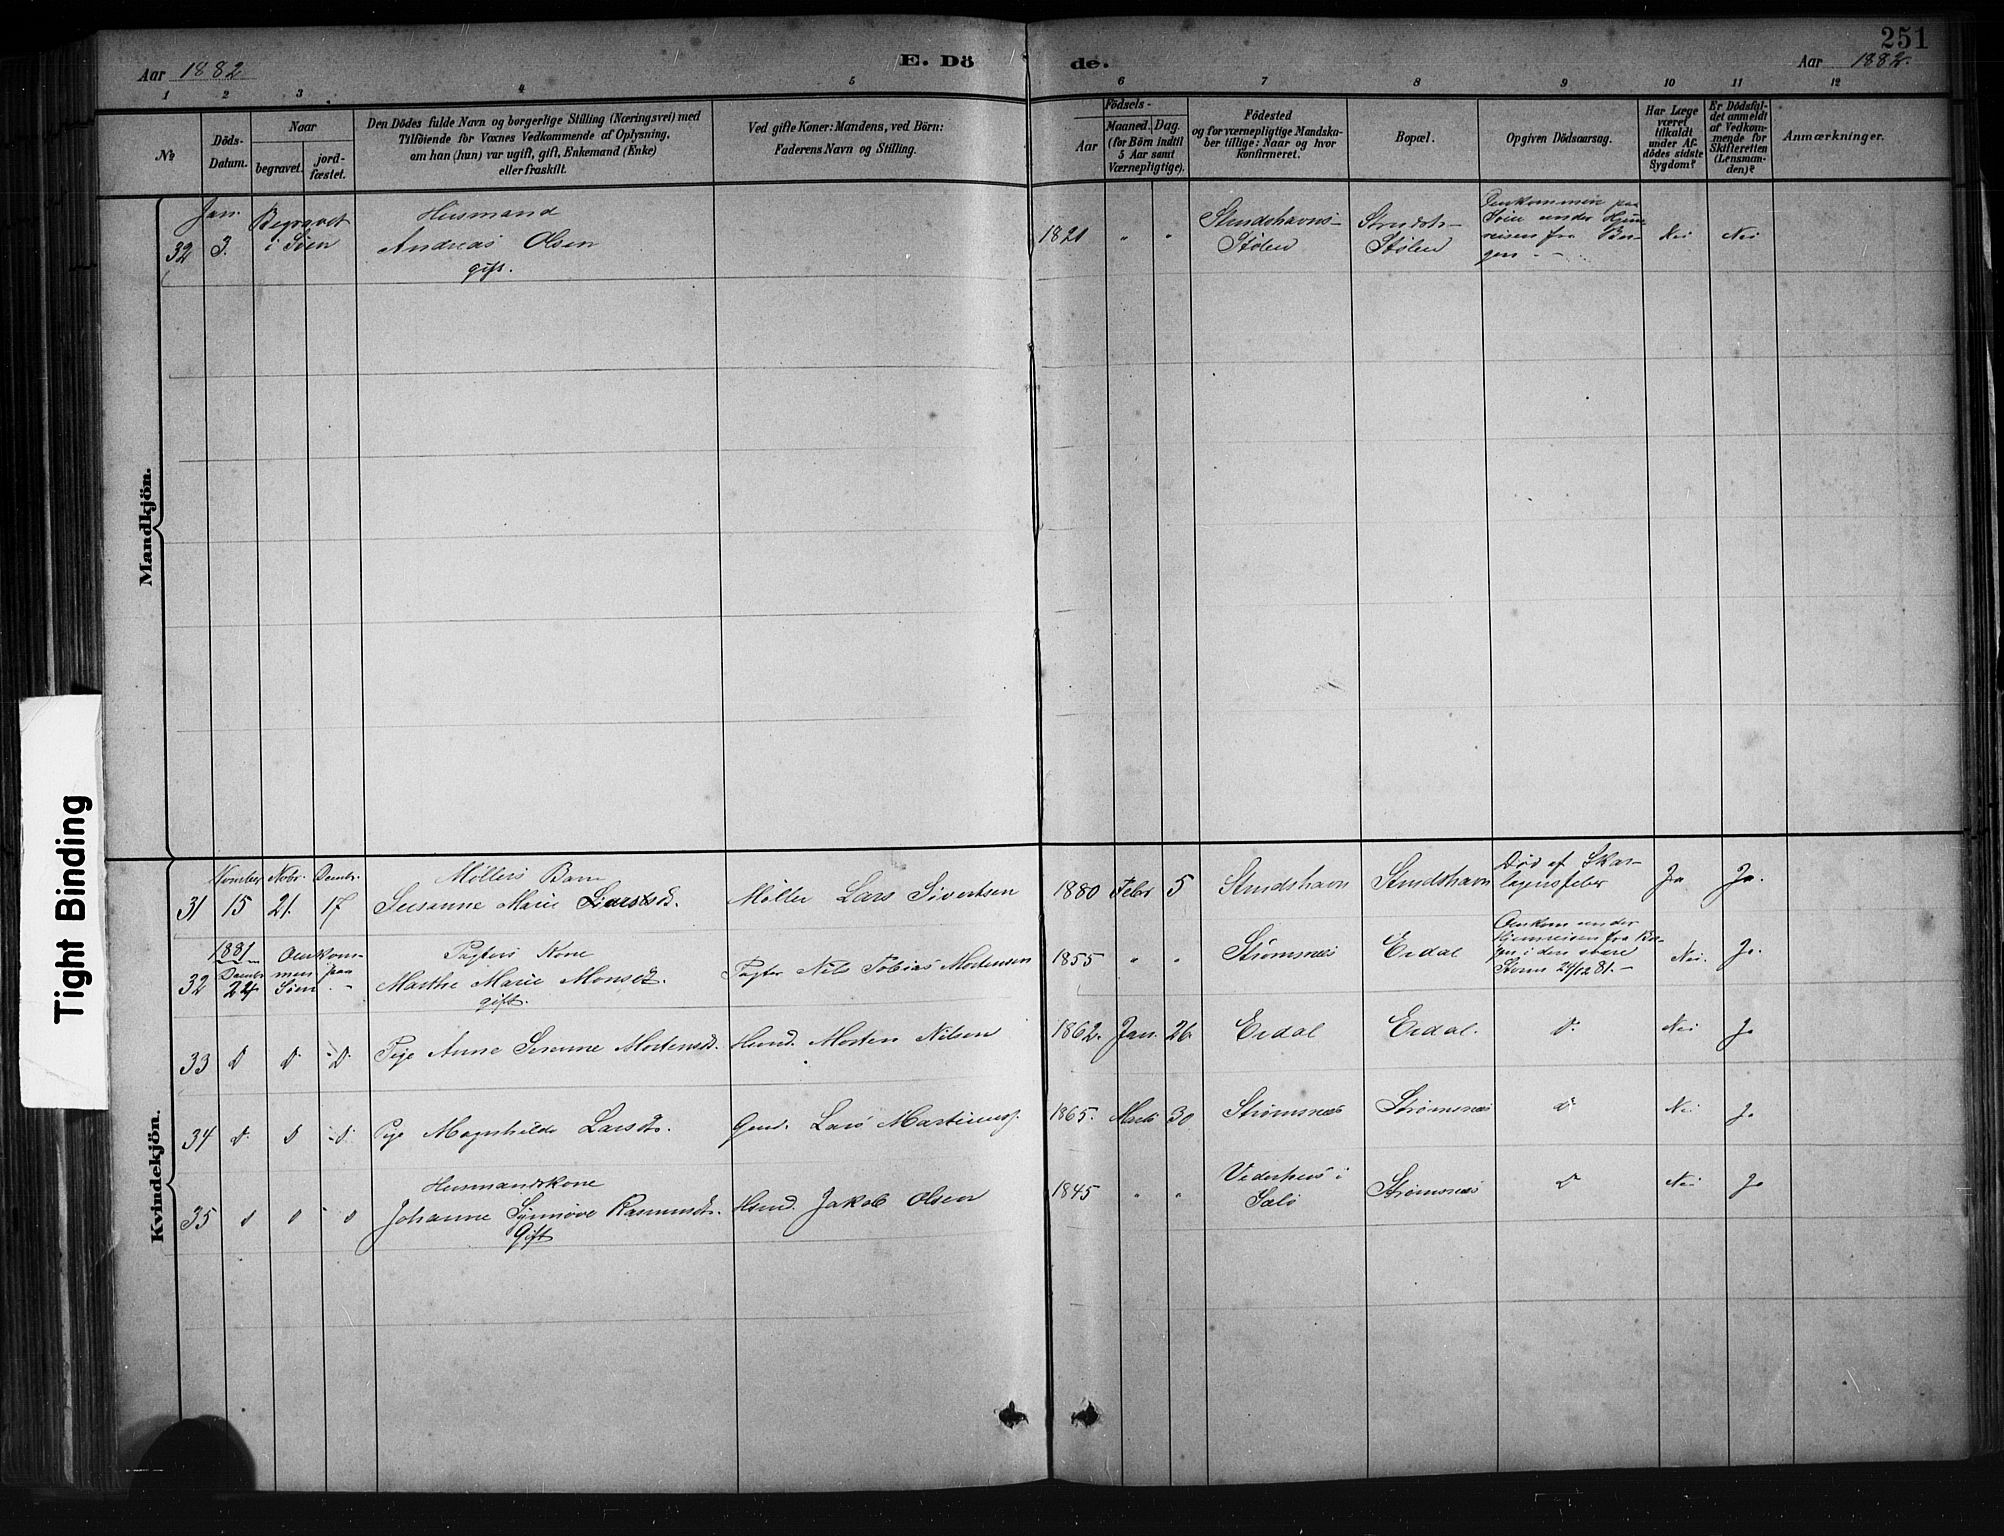 251
Aar 1882
E. Dö
de.
Aar 1882.
1 2 3 4 5 6 7 8 9 10 11 12
№
Döds-
Datum.
Naar
begravet.
jord-
fæstet.
Den Dödes fulde Navn og borgerlige Stilling (Næringsvei) med
Tilföiende for Voxnes Vedkommende af Oplysning,
om han (hun) var ugift, gift, Enkemand (Enke)
eller fraskilt.
Ved gifte Koner: Mandens, ved Börn:
Faderens Navn og Stilling.
Aar
Födsels-
Maaned. Dag.
(for Börn indtil
5 Aar samt
Værnepligtige).
Födested
og for værnepligtige Mandska-
ber tillige: Naar og hvor
konfirmeret.
Bopæl.
Opgiven Dödsaarsag.
Har Læge
været
tilkaldt
under Af-
dödes sidste
Sygdom?
Er Dödsfal-
det anmeldt
af Vedkom-
mende for
Skifteretten
(Lensman-
den)?
Anmærkninger.
Mandkjön.
32 Jan. 3. Begravet
i Søen
Husmand
Andreas Olsen
gift.
1821 " "
Studshavns-
Stølen
Stølen
Omkommen paa
Søen under Hjem-
reisen fra Ber-
gen
Nei Nei
Kvindekjön.
31 15 Nobr. 21. Decmbr. 17
Møllers Barn
Susanne Marie Larsd.
Møller Lars Sivertsen
1880 Febr 5 Studshavn Studshavn
Død af Skar-
lagensfeber
Ja Ja.
32 1881 Decmbr 24 Omkom-
men paa
Søen
Pagters Kone
Marthe Marie Monsd.
gift.
Pagter Nils Tobias Mortensen
1855 " " Strømsnes Erdal
Omkom under
Hjemreisen fra Ber-
gen i den svare
Storm 24/12 81.
Nei. Ja.
33 D D D Pige Anne Serenne Mortensd. Husmd. Morten Nilsen
1862. Jan. 26. Erdal Erdal. D. Nei Ja
34 D. D D. Pige Magnhilde Larsdtr. Gmd. Lars Martinus.
1865. Marts 30 Strømsnes Strømsnes D Nei Ja
35 D D D
Husmandskone
Johanne Synnøve Rasmusdtr.
Gift
Hsmd. Jakob Olsen
1845 " "
Vederhus i
Sælø
Strømsnes D Nei Ja
Tight Binding